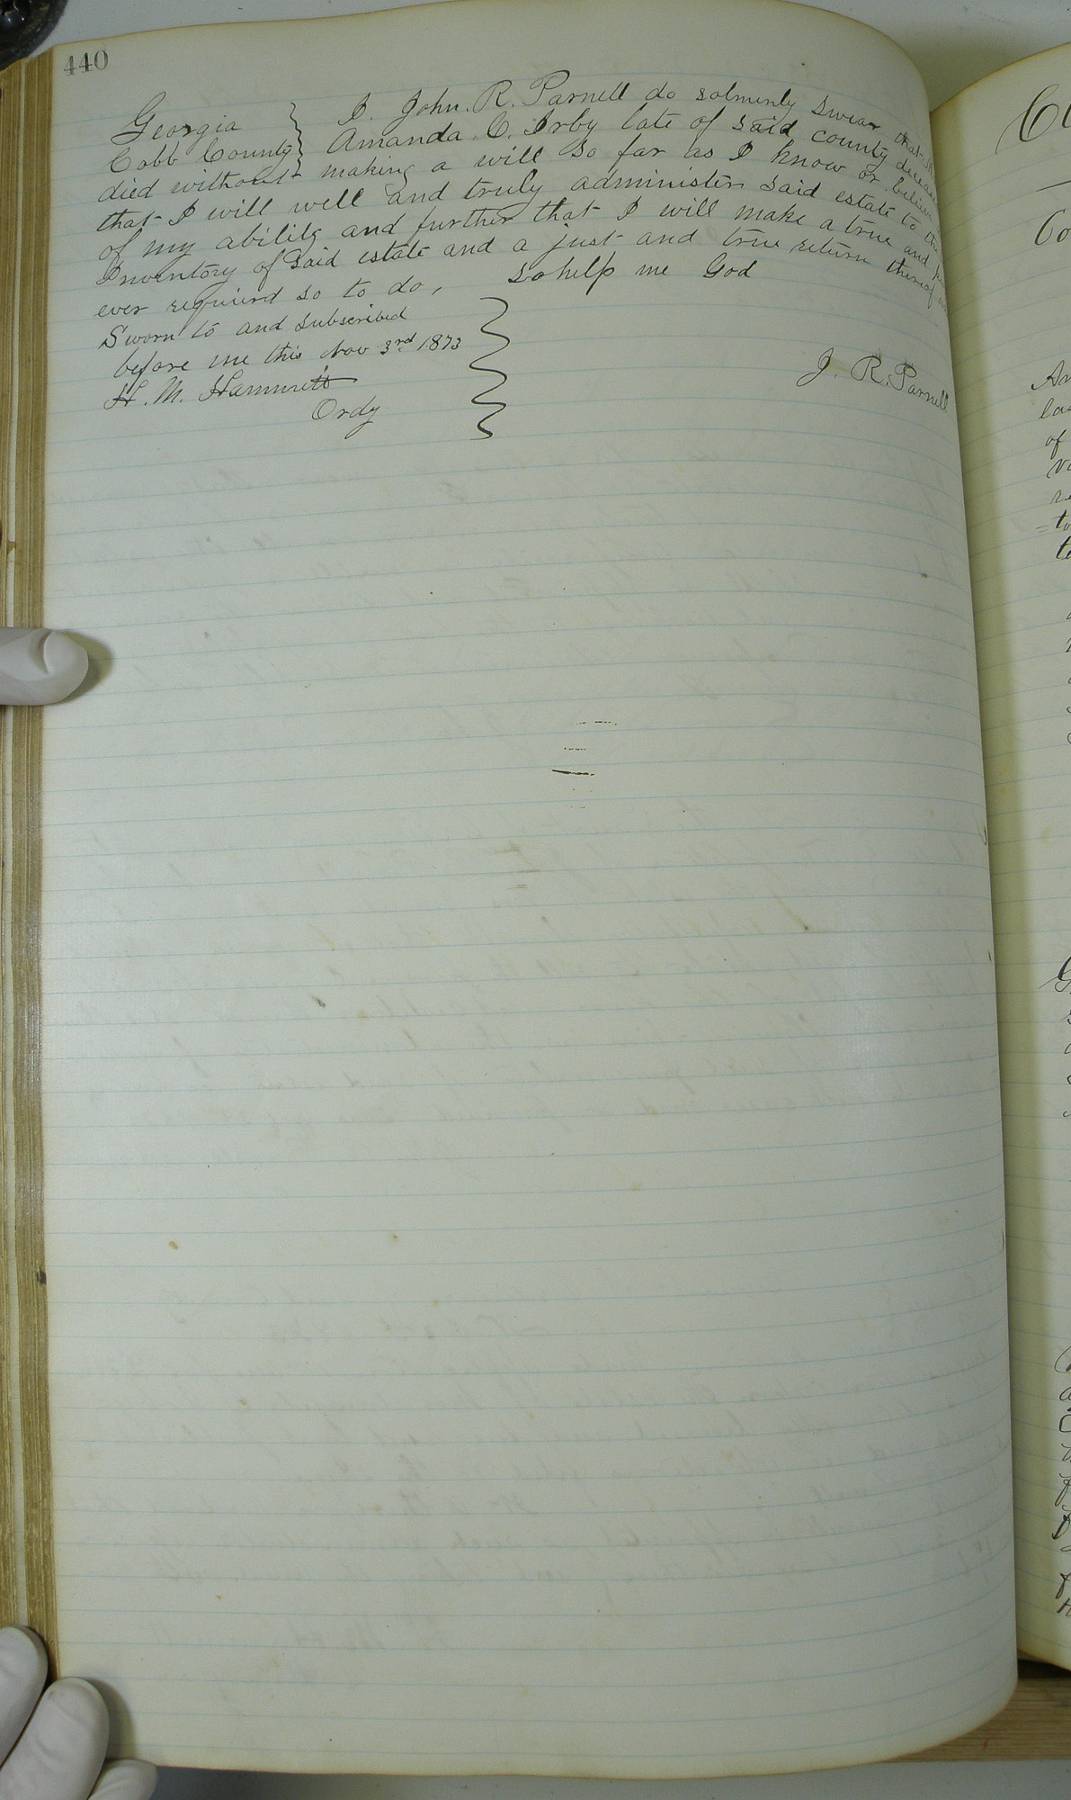 440
Georgia
Cobb County
I. John. R. Parnell do solmenly swear that
Amanda. C. Irby late of said county deceased
died without making a will so far as I know or believe
that I will well and truly administer said estate to the
of my ability and further that I will make a true and
Inventory of said estate and a just and true return thereof
ever required so to do, so help me God
Sworn to and subscribed
before me this Nov 3rd 1873
H. M. Hammett
Ordy
J. R. Parnell
Co
of
to